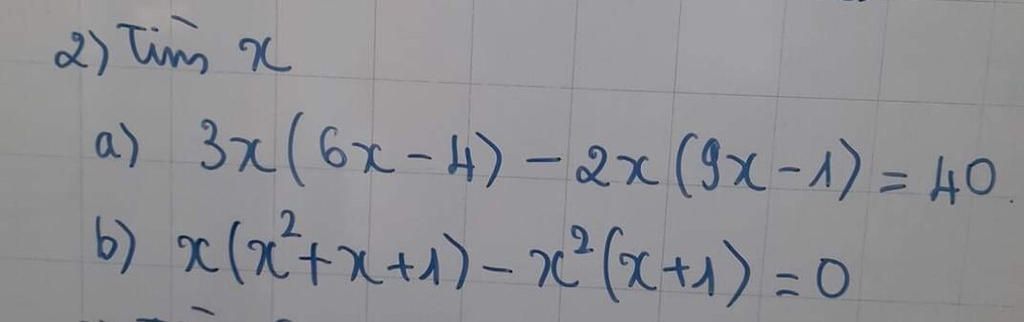 2) Tìm x
a) 3x(6x-4)-2x(9x-1)=40.
b) x(x²+x+1)-x²(x+1)=0